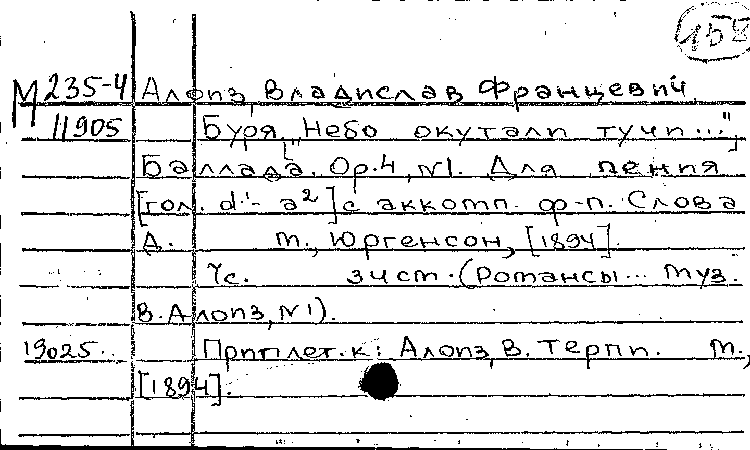 458
М 235-4 Алоиз, Владислав Францевич
11905 Буря „Небо окутали тучи..."
Баллада. Op.4, N1. Для пения
[гол. d¹- a²] с аккомп. ф-п. Слова
Д. М., Юргенсон, [1894].
7с. Зист. (Романсы... муз.
В. Алоиз, N1).
19025 Приплет. к: Алоиз, В. Терпи. М.,
[1894].